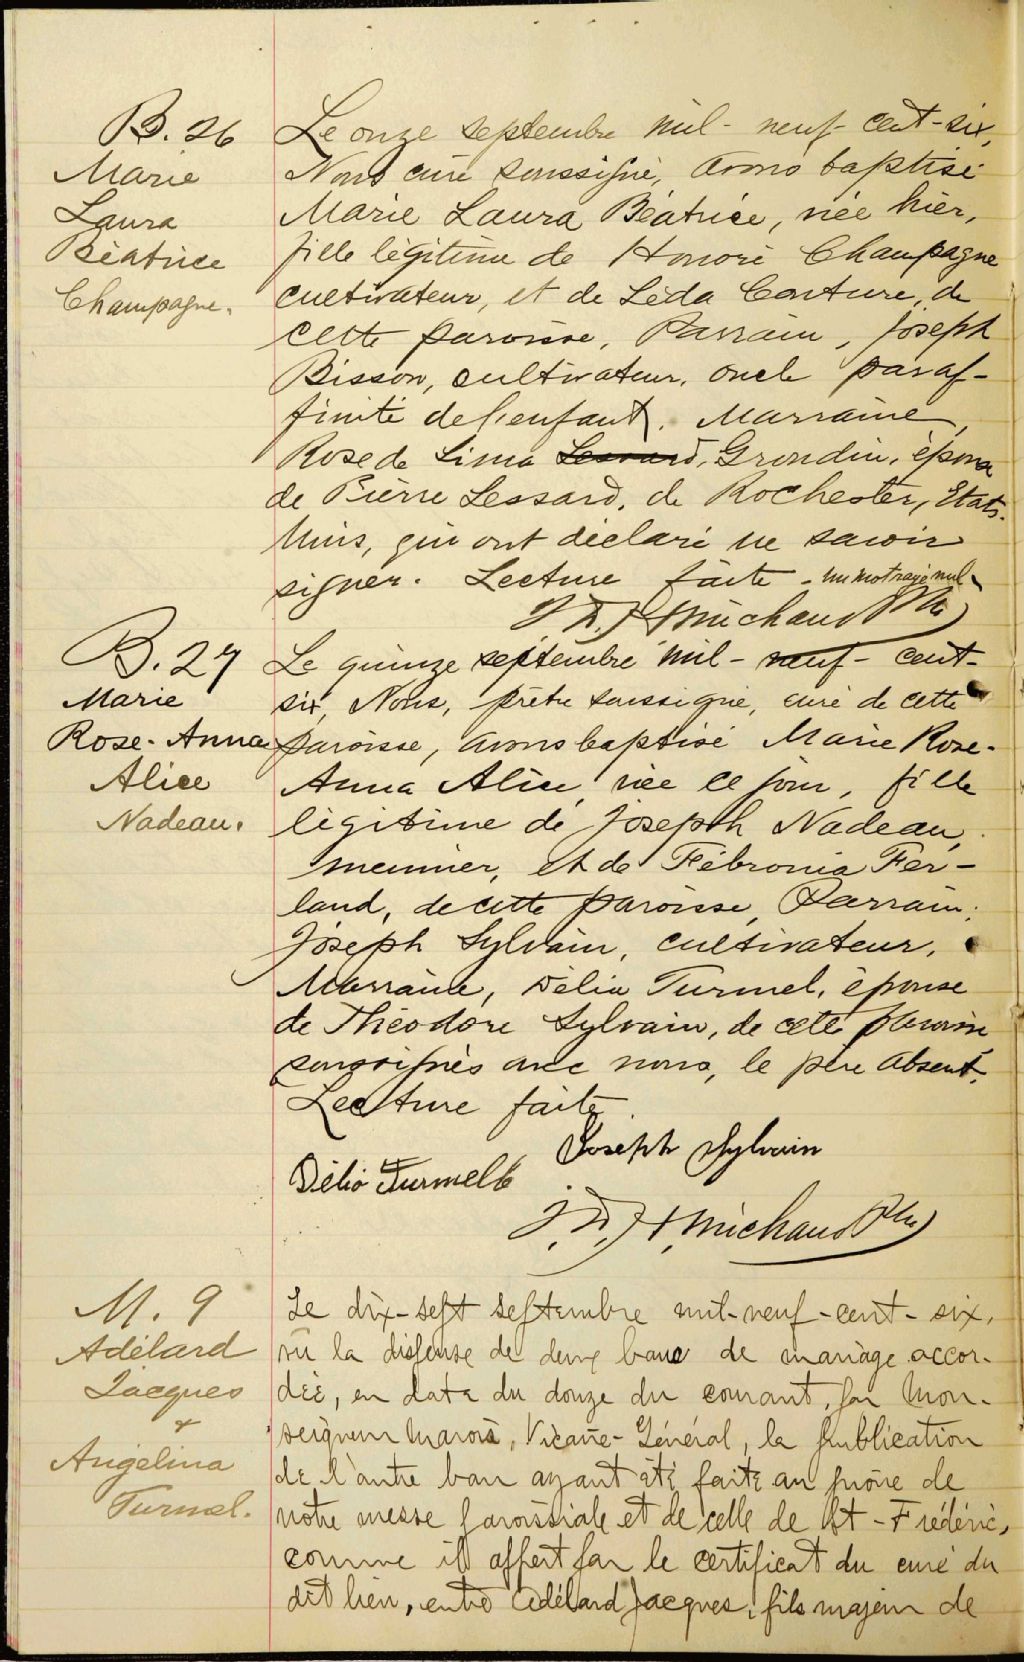 B. 26
Marie
Laura
Béatrice
Champagne.
Le onze septembre mil-neuf-cent-six,
Nous curé soussigné, avons baptisé
Marie Laura Béatrice, née hier,
fille légitime de Honoré Champagne
cultivateur, et de Léda Couture, de
cette paroisse, Parrain, Joseph
Bisson, cultivateur, oncle par af-
finité de l'enfant. Marraine,
Rose de Lima Lessard, Grondin, épouse
de Pierre Lessard, de Rochester, Etats-
Unis, qui ont déclaré ne savoir
signer. Lecture faite. un mot rayé nul
J. D. H. Michaud Ptre
B. 27
Marie
Rose-Anna
Alice
Nadeau.
Le quinze septembre mil-neuf-cent-
six, Nous, prêtre soussigné, curé de cette
paroisse, avons baptisé Marie Rose-
Anna Alice, née ce jour, fille
légitime de Joseph Nadeau,
meunier, et de Fébronia Fer-
land, de cette paroisse, Parrain,
Joseph Sylvain, cultivateur,
Marraine, Délia Turmel, épouse
de Théodore Sylvain, de cette paroisse
soussignés avec nous, le père absent,
Lecture faite.
Joseph Sylvain
Délia Turmelle
J. D. H. Michaud Ptre
M. 9
Adélard
Jacques
&
Angélina
Turmel.
Le dix-sept septembre mil-neuf-cent-six,
vu la dispense de deux bans de mariage accor-
dée, en date du douze du courant, par Mon-
seigneur Marois, Vicaire-Général, la publication
de l'autre ban ayant été faite au prône de
notre messe paroissiale et de celle de St-Frédéric,
comme il appert par le certificat du curé du
dit lieu, entre Adélard Jacques, fils majeur de